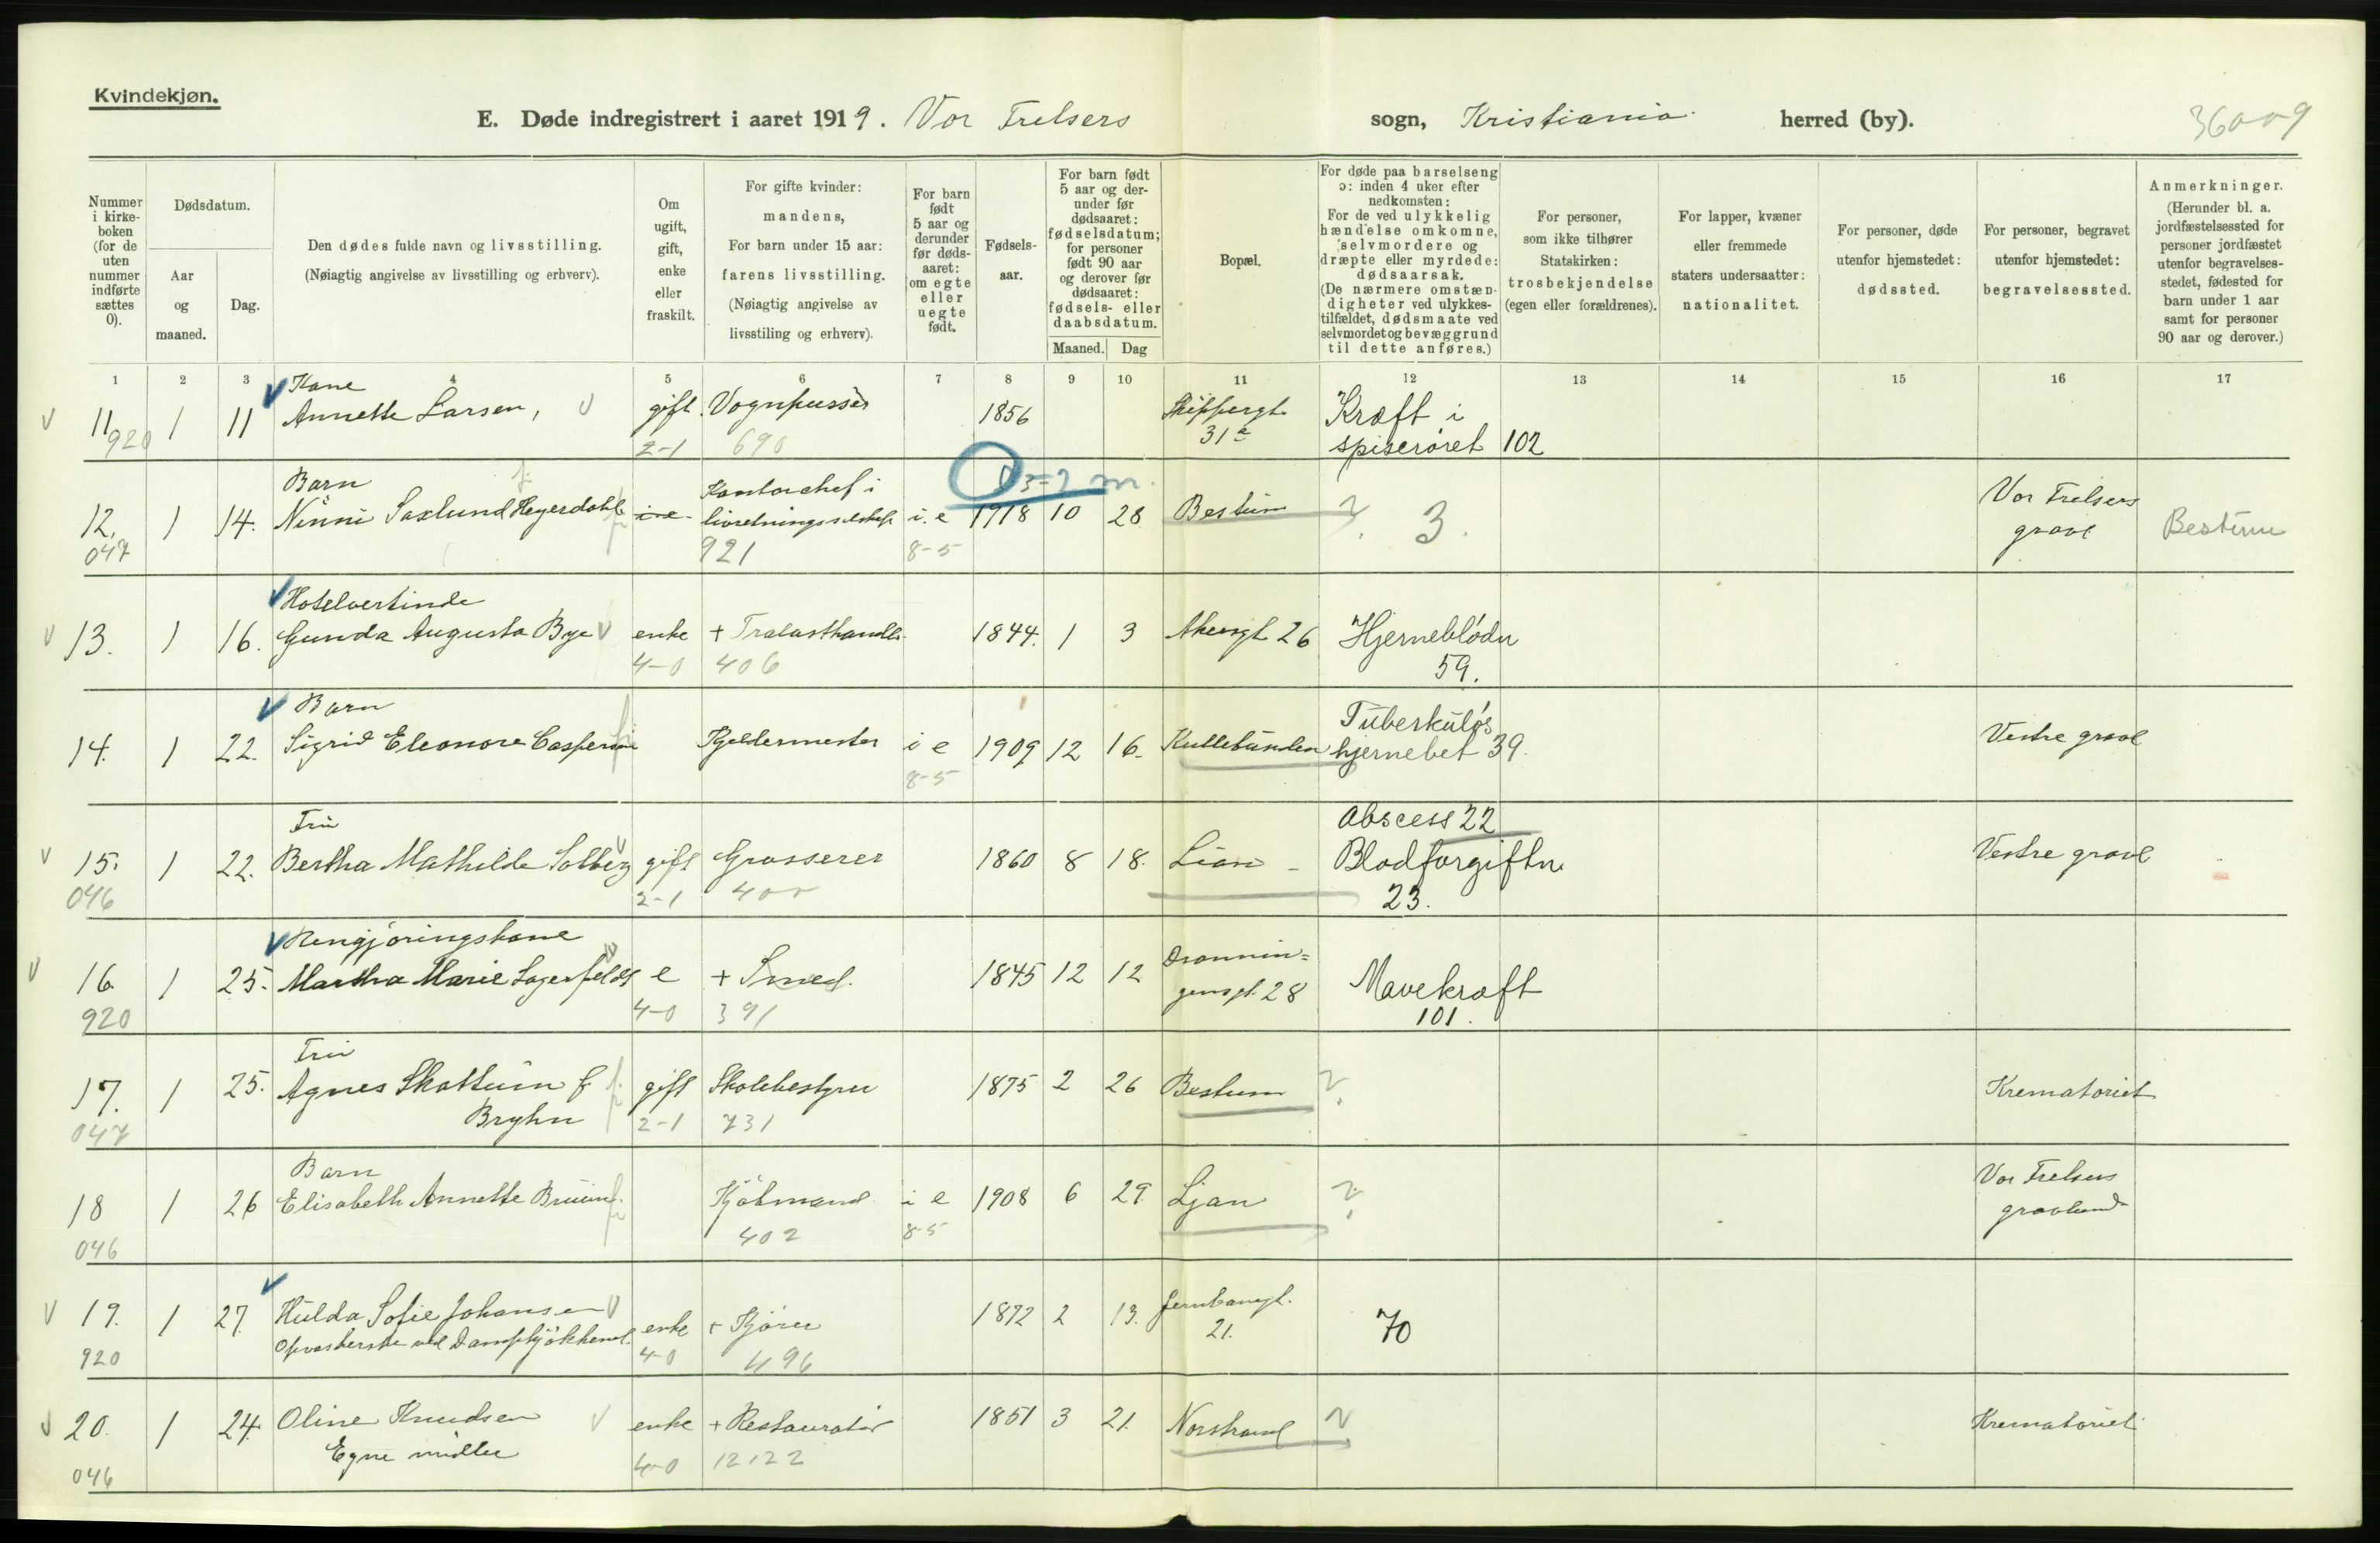 Kvindekjøn.
E. Døde indregistrert i aaret 1919. Vor Frelsers sogn, Kristiania herred (by).
36009
Nummer i kirke-boken (for de uten nummer indførte sættes 0).
Dødsdatum.
Aar og maaned.
Dag.
Den dødes fulde navn og livsstilling. (Nøiagtig angivelse av livsstilling og erhverv).
Om ugift, gift, enke eller fraskilt.
For gifte kvinder: mandens, For barn under 15 aar: farens livsstilling. (Nøiagtig angivelse av livsstiling og erhverv).
For barn født 5 aar og derunder før døds-aaret: om egte eller uegte født.
Fødsels-aar.
For barn født 5 aar og der-under før dødsaaret: fødselsdatum; for personer født 90 aar og derover før dødsaaret: fødsels- eller daabsdatum.
Maaned. Dag
Bopæl.
For døde paa barselseng ɔ: inden 4 uker efter nedkomsten: For de ved ulykkelig hændelse omkomne, selvmordere og dræpte eller myrdede: dødsaarsak. (De nærmere omstæn-digheter ved ulykkes-tilfældet, dødsmaate ved selvmordet og bevæggrund til dette anføres.)
For personer, som ikke tilhører Statskirken: trosbekjendelse (egen eller forældrenes).
For lapper, kvæner eller fremmede staters undersaatter: nationalitet.
For personer, døde utenfor hjemstedet: dødssted.
For personer, begravet utenfor hjemstedet: begravelsessted.
Anmerkninger. (Herunder bl. a. jordfæstelsessted for personer jordfæstet utenfor begravelses-stedet, fødested for barn under 1 aar samt for personer 90 aar og derover.)
1 2 3 4 5 6 7 8 9 10 11 12 13 14 15 16 17
Kone
11 1 11 Annette Larsen, gift Vognpusser 1856 Skippergt. 31a Kræft i
920 2-1 690 spiserøret 102
Barn Kontorchef i 3=2 m. Vor Frelsers
12. 1 14. Ninni Saxlund Heyerdahl livretningsselskap i.e 1918 10 28 Bestum ? 3. grave Bestum
047 921 8-5
Hotelvertinde
13. 1 16. Gunda Augusta Bye enke + Trælasthandler 1844. 1 3 Akersgt 26 Hjerneblødn
4-0 406 59.
Barn Tuberkuløs
14. 1 22. Sigrid Eleonore Caspersen Kjeldermester i e 1909 12 16. Kullebunden hjernebet 39. Vestre grave
8-5
Fru Abscess 22
15. 1 22. Bertha Mathilde Solberg gift Grosserer 1860 8 18. Lian Blodforgiftn. Vestre grave
046 2-1 400 23.
Rengjøringskone Dronnin=
16. 1 25. Martha Marie Lagerfeldt e + Smed. 1845 12 12 gensgt. 28 Mavekræft
920 4-0 391 101.
Fru
17. 1 25. Agnes Skattum f. gift Skolebestyrer 1875 2 26 Bestum ? Krematoriet
047 Bryhn 2-1 731
Barn Vor Frelsers
18 1 26 Elisabeth Annette Bruun Kjøbmand i e 1908 6 29. Ljan ? gravlund
046 402 8-5
19. 1 27. Hulda Sofie Johansen enke + Kjører 1872 2 13. Jernbanegt. 21. 70
920 Opvaskerske ved Dampkjøkkenet 4-0 496
20. 1 24. Oline Knudsen enke + Restauratør 1851 3 21. Norstrand ? Krematoriet
046 Egne midler 4-0 12122